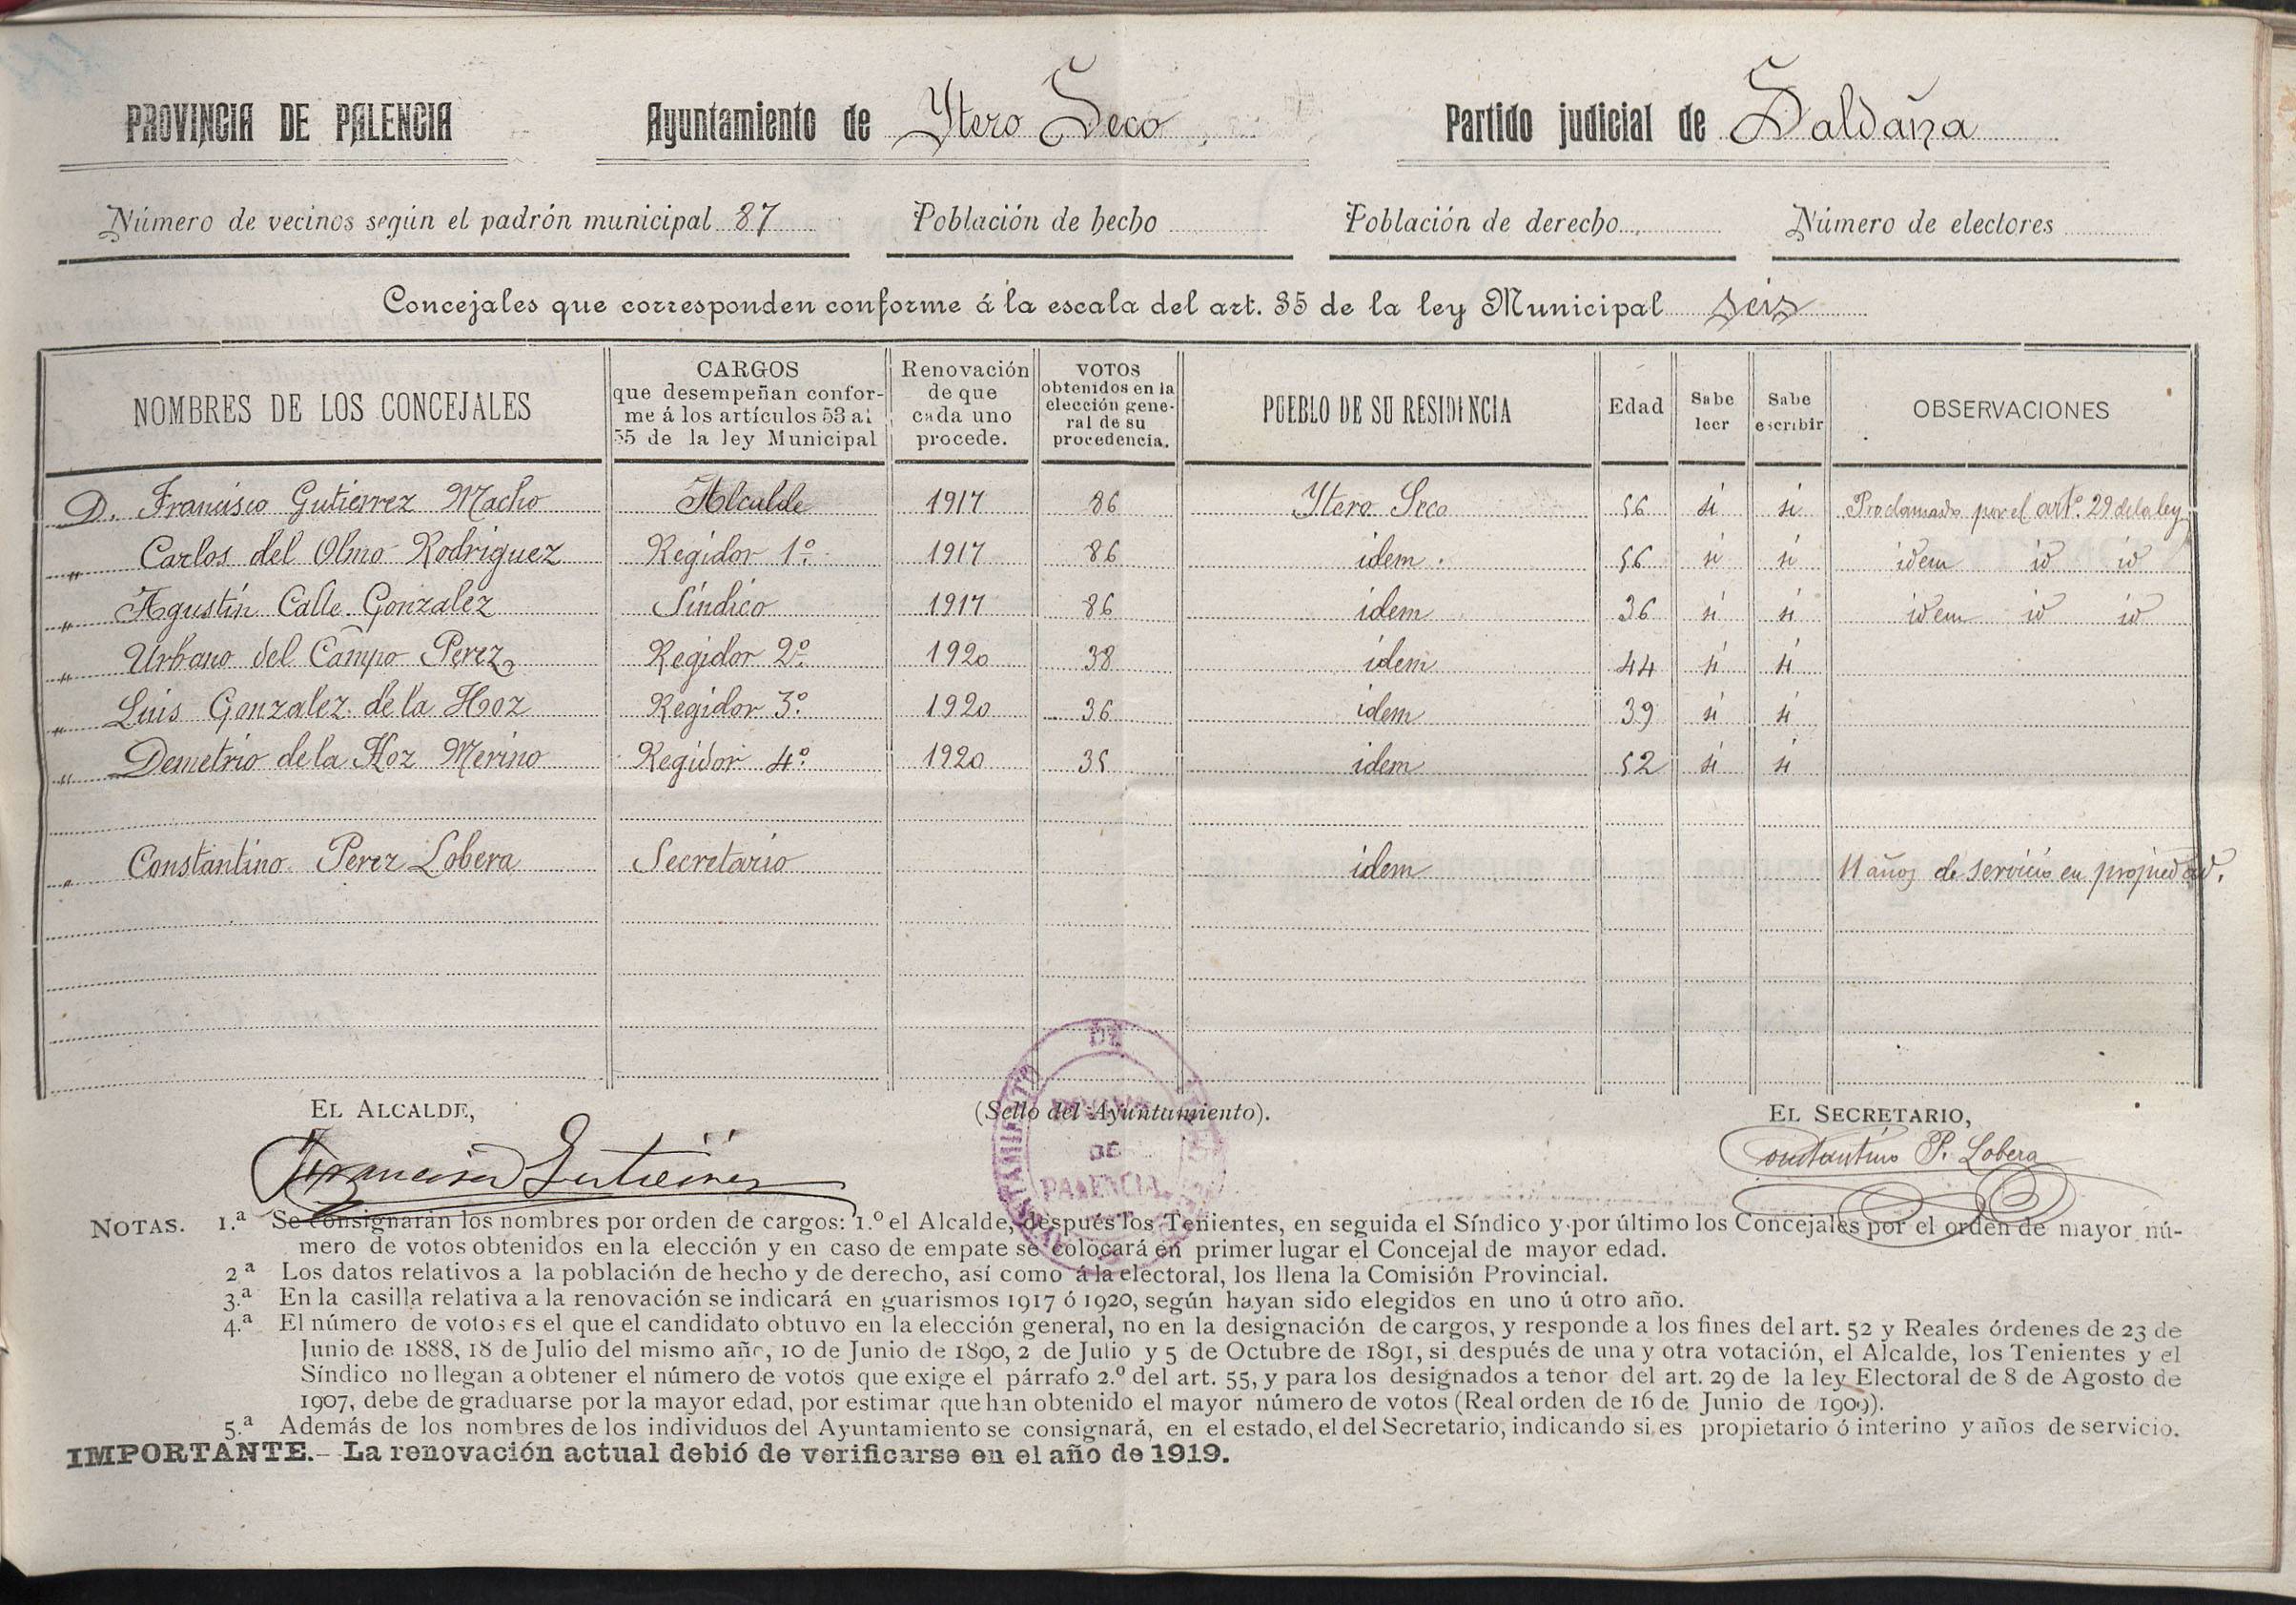 PROVINCIA DE PALENCIA Ayuntamiento de Ytero Seco Partido judicial de Saldaña
Número de vecinos según el padrón municipal 87 Población de hecho Población de derecho Número de electores
Concejales que corresponden conforme á la escala del art. 35 de la ley Municipal seis
NOMBRES DE LOS CONCEJALES
CARGOS
que desempeñan confor-
me á los artículos 53 al
55 de la ley Municipal
Renovación
de que
cada uno
procede.
VOTOS
obtenidos en la
elección gene-
ral de su
procedencia.
PUEBLO DE SU RESIDENCIA
Edad
Sabe
leer
Sabe
escribir
OBSERVACIONES
D. Francisco Gutierrez Macho Alcalde 1917 86 Ytero Seco 56 si si Proclamado por el artº. 29 de la ley
" Carlos del Olmo Rodriguez Regidor 1º 1917 86 idem. 56 si si idem id id
" Agustín Calle Gonzalez Síndico 1917 86 idem 36 si si idem id id
" Urbano del Campo Perez Regidor 2º 1920 38 idem 44 si si
" Luis Gonzalez de la Hoz Regidor 3º 1920 36 idem 39 si si
" Demetrio de la Hoz Merino Regidor 4º 1920 35 idem 52 si si
" Constantino Perez Lobera Secretario idem 11 años de servicio en propiedad.
EL ALCALDE, (Sello del Ayuntamiento). EL SECRETARIO,
Francisco Gutierrez Constantino P. Lobera
AYUNTAMIENTO DE
DE
PALENCIA
NOTAS. 1.ª Se consignarán los nombres por orden de cargos: 1.º el Alcalde, después los Tenientes, en seguida el Síndico y por último los Concejales por el orden de mayor nú-
mero de votos obtenidos en la elección y en caso de empate se colocará en primer lugar el Concejal de mayor edad.
2.ª Los datos relativos a la población de hecho y de derecho, así como á la electoral, los llena la Comisión Provincial.
3.ª En la casilla relativa a la renovación se indicará en guarismos 1917 ó 1920, según hayan sido elegidos en uno ú otro año.
4.ª El número de votos es el que el candidato obtuvo en la elección general, no en la designación de cargos, y responde a los fines del art. 52 y Reales órdenes de 23 de
Junio de 1888, 18 de Julio del mismo año, 10 de Junio de 1890, 2 de Julio y 5 de Octubre de 1891, si después de una y otra votación, el Alcalde, los Tenientes y el
Síndico no llegan a obtener el número de votos que exige el párrafo 2.º del art. 55, y para los designados a tenor del art. 29 de la ley Electoral de 8 de Agosto de
1907, debe de graduarse por la mayor edad, por estimar que han obtenido el mayor número de votos (Real orden de 16 de Junio de 1909).
5.ª Además de los nombres de los individuos del Ayuntamiento se consignará, en el estado, el del Secretario, indicando si es propietario ó interino y años de servicio.
IMPORTANTE.- La renovación actual debió de verificarse en el año de 1919.